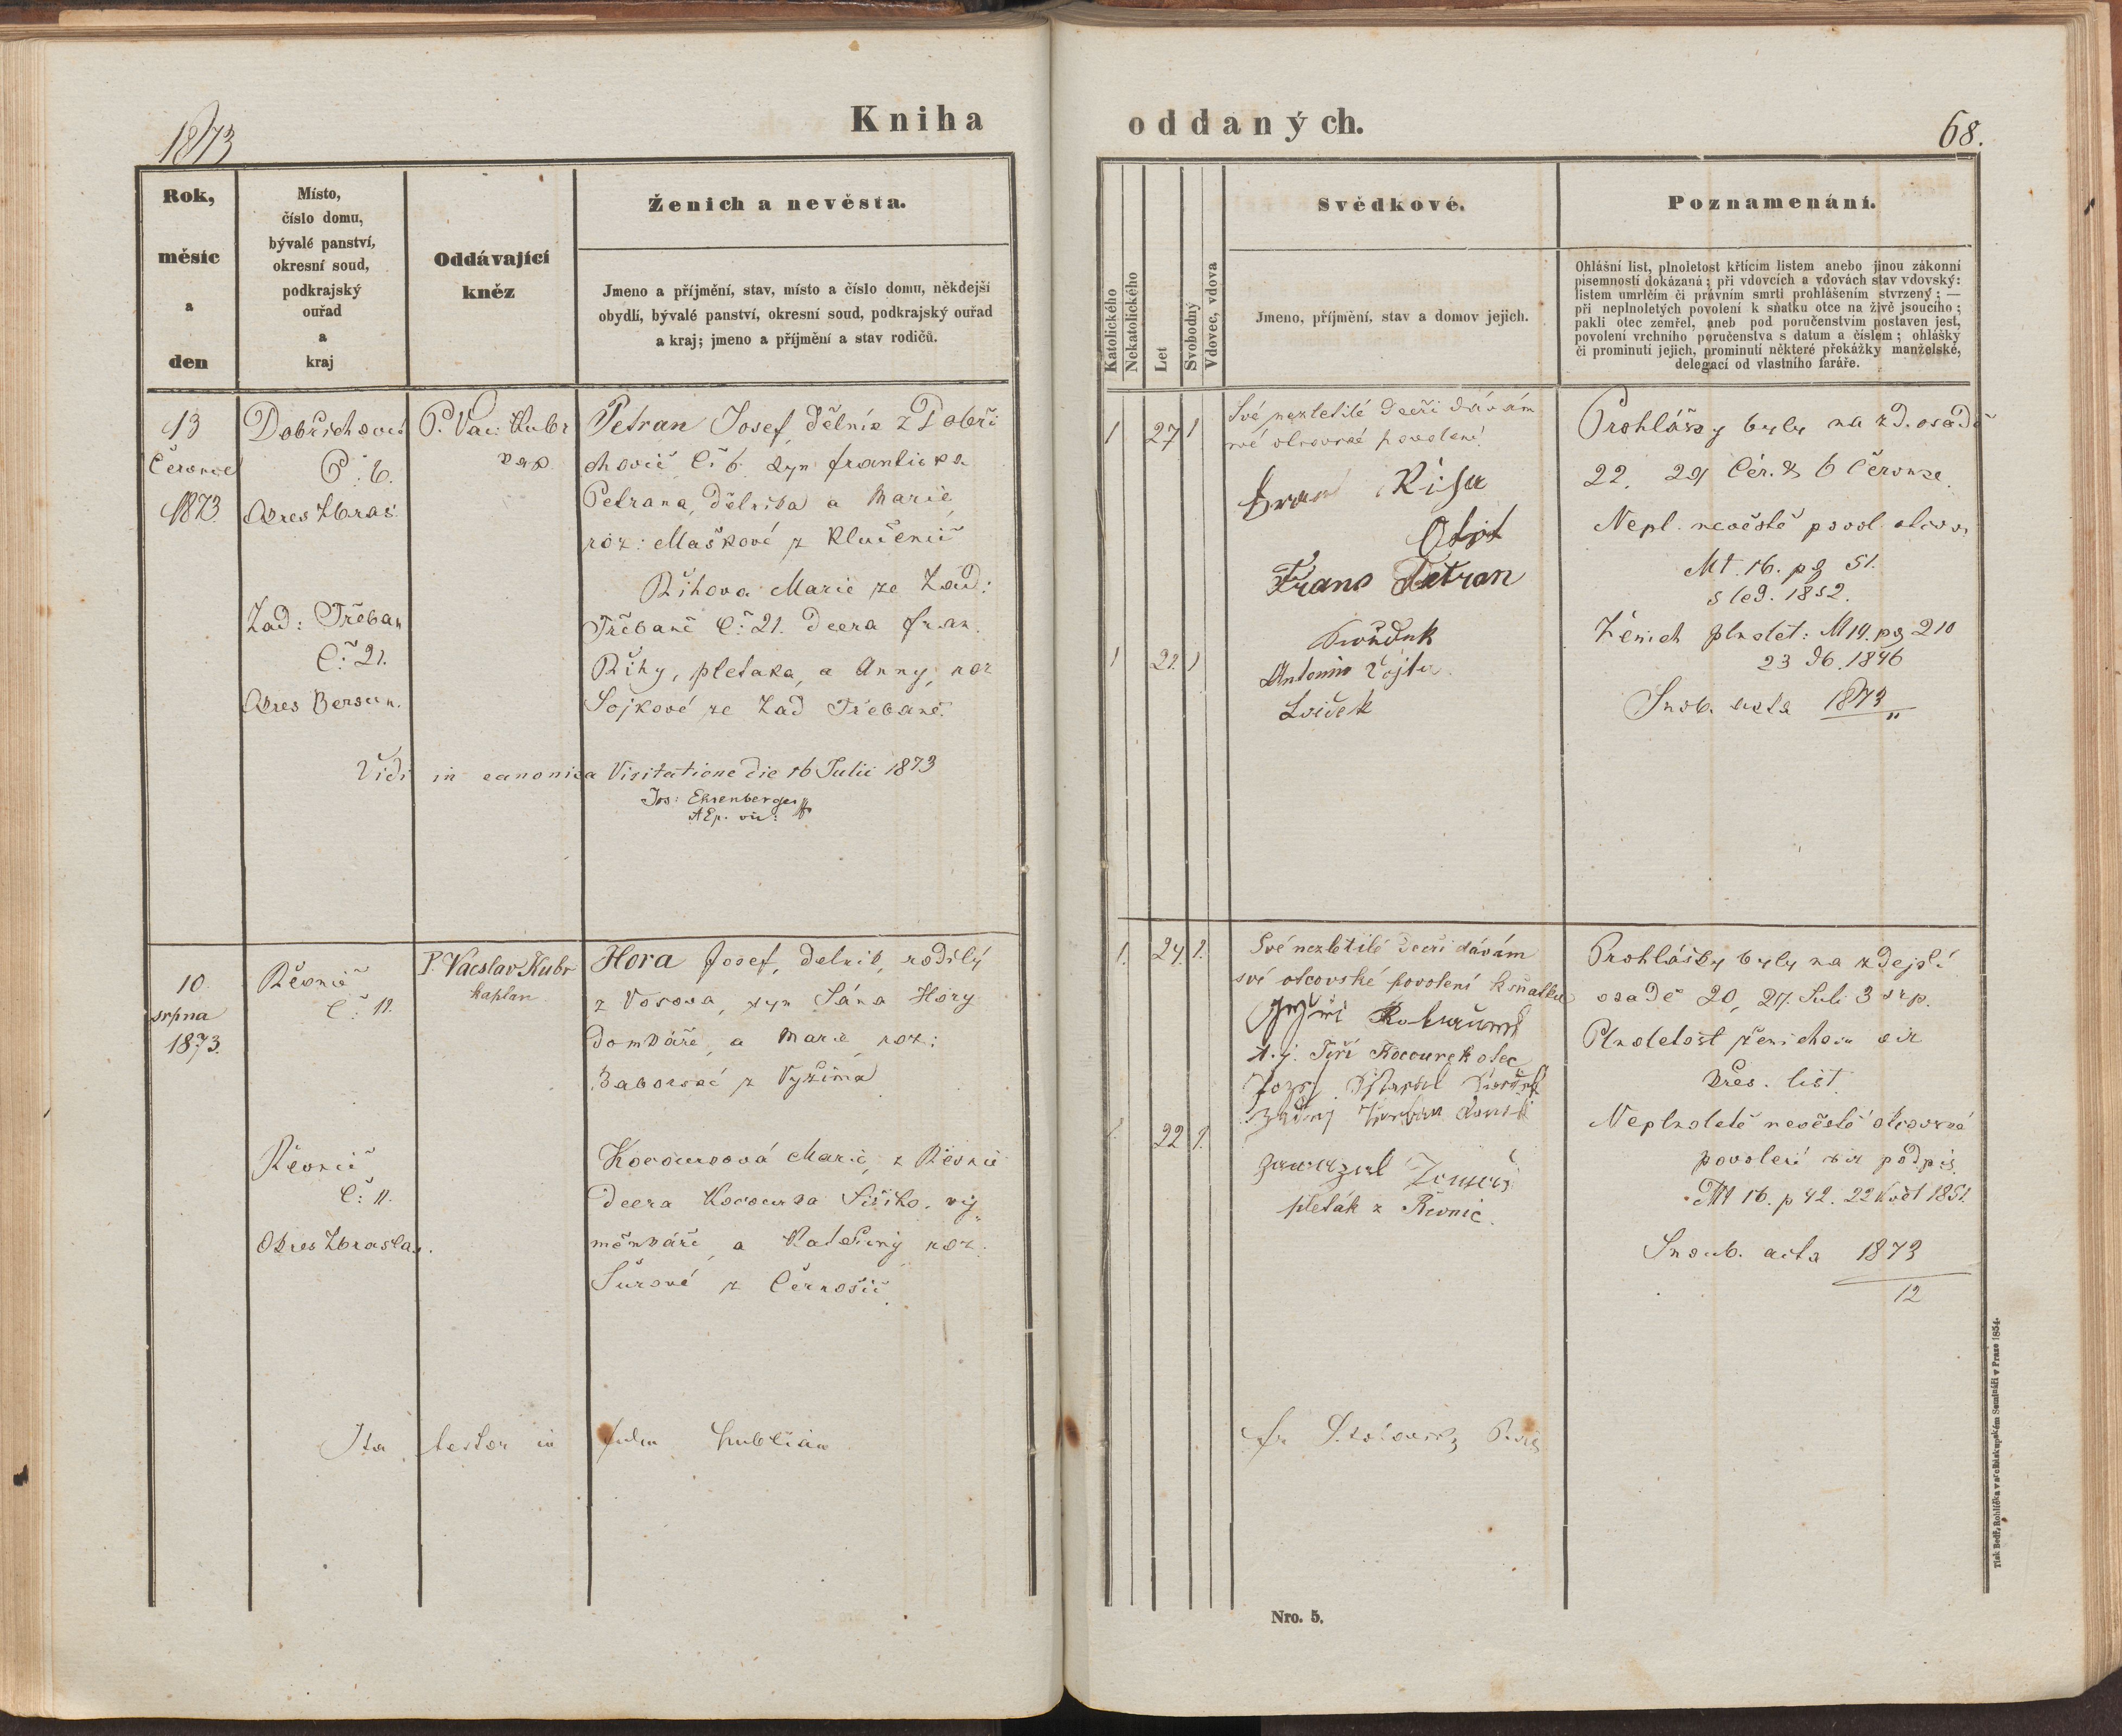 1873
Kniha
oddaných.
68.
Rok,
měsíc
a
den
Místo,
číslo domu,
bývalé panství,
okresní soud,
podkrajský
ouřad
a
kraj
Oddávající
kněz
Ženich a nevěsta.
Jmeno a příjmění, stav, místo a číslo domu, někdejší
obydlí, bývalé panství, okresní soud, podkrajský ouřad
a kraj; jmeno a příjmění a stav rodičů.
Katolického
Nekatolického
Let
Svobodný
Vdovec, vdova
Svědkové.
Jmeno, příjmění, stav a domov jejich.
Poznamenání.
Ohlášní list, plnoletost křtícím listem anebo jinou zákonní
písemností dokázaná; při vdovcích a vdovách stav vdovský:
listem umrlčím či právním smrti prohlášením stvrzený; —
při neplnoletých povolení k sňatku otce na živě jsoucího;
pakli otec zemřel, aneb pod poručenstvím postaven jest,
povolení vrchního poručenstva s datum a číslem; ohlášky
či prominutí jejich, prominutí některé překážky manželské,
delegací od vlastního faráře.
13
Června
1873.
Dobřichovic
Č. 6.
Okres Zbras.
Zad: Třeban
Č. 21.
Okres Beroun.
P. Vác. Kubr
kap.
Petran Josef, dělník z Dobři
chovic č. 6. syn Františka
Petrana, dělníka a Marie,
roz: Maškové z Klučenic
Řihova Marie ze Zad:
Třebaně č: 21. dcera Fran.
Řihy, pletaka, a Anny, roz
Sojkové ze Zad Třebaně.
Vidi in canonica Visitatione die 16 Julii 1873
Jos: Ehrenberger
AEp. vic:
1 27 1
1 22 1
Své nezletilé dceři dávám
své otcovské povolení
Řiha
Franc Petran
Antonín Vojta
Prohlášky byly na zd. osadě
22. 29 Čer. & 6 Července.
Nepl. nevěstě povol. otcov.
Mt. 16. pg 51.
5 led. 1852.
Ženich plnolet: M 19. pg 210
23 1846
Snub. acta 1873
11
10
srpna
1873.
Řevnic
č. 11.
Řevnic
č: 11.
Okres Zbraslav.
P. Vacslav Kubr
kaplan
Hora Josef, dělník, rodilý
z Vosova, syn Jána Hory
domkáře, a Marie, roz:
z Vyžima
Kocourková Marie, z Řevnic
dcera Kocourka Jiřího, vý
měnkáře, a Kateřiny roz.
Šurové z Černošic.
1. 24. 1.
22 1.
Své nezletilé dceři dávám
své otcovské povolení k sňatku
t. j. Jiří Kocourek otec
pleták z Řevnic.
Prohlášky byly na zdejší
osadě 20, 27. Juli 3 srp.
Plnoletost ženichova viz
křes. list
Neplnoleté nevěstě otcovské
povolení viz podpis.
M 16. p 42. 22 Květ 1851.
Snoub. acta 1873
12
Ita testor in fidem publicam
Nro. 5.
Tisk Bedř. Rohlíčka v arcibiskupském Semináři v Praze 1854.